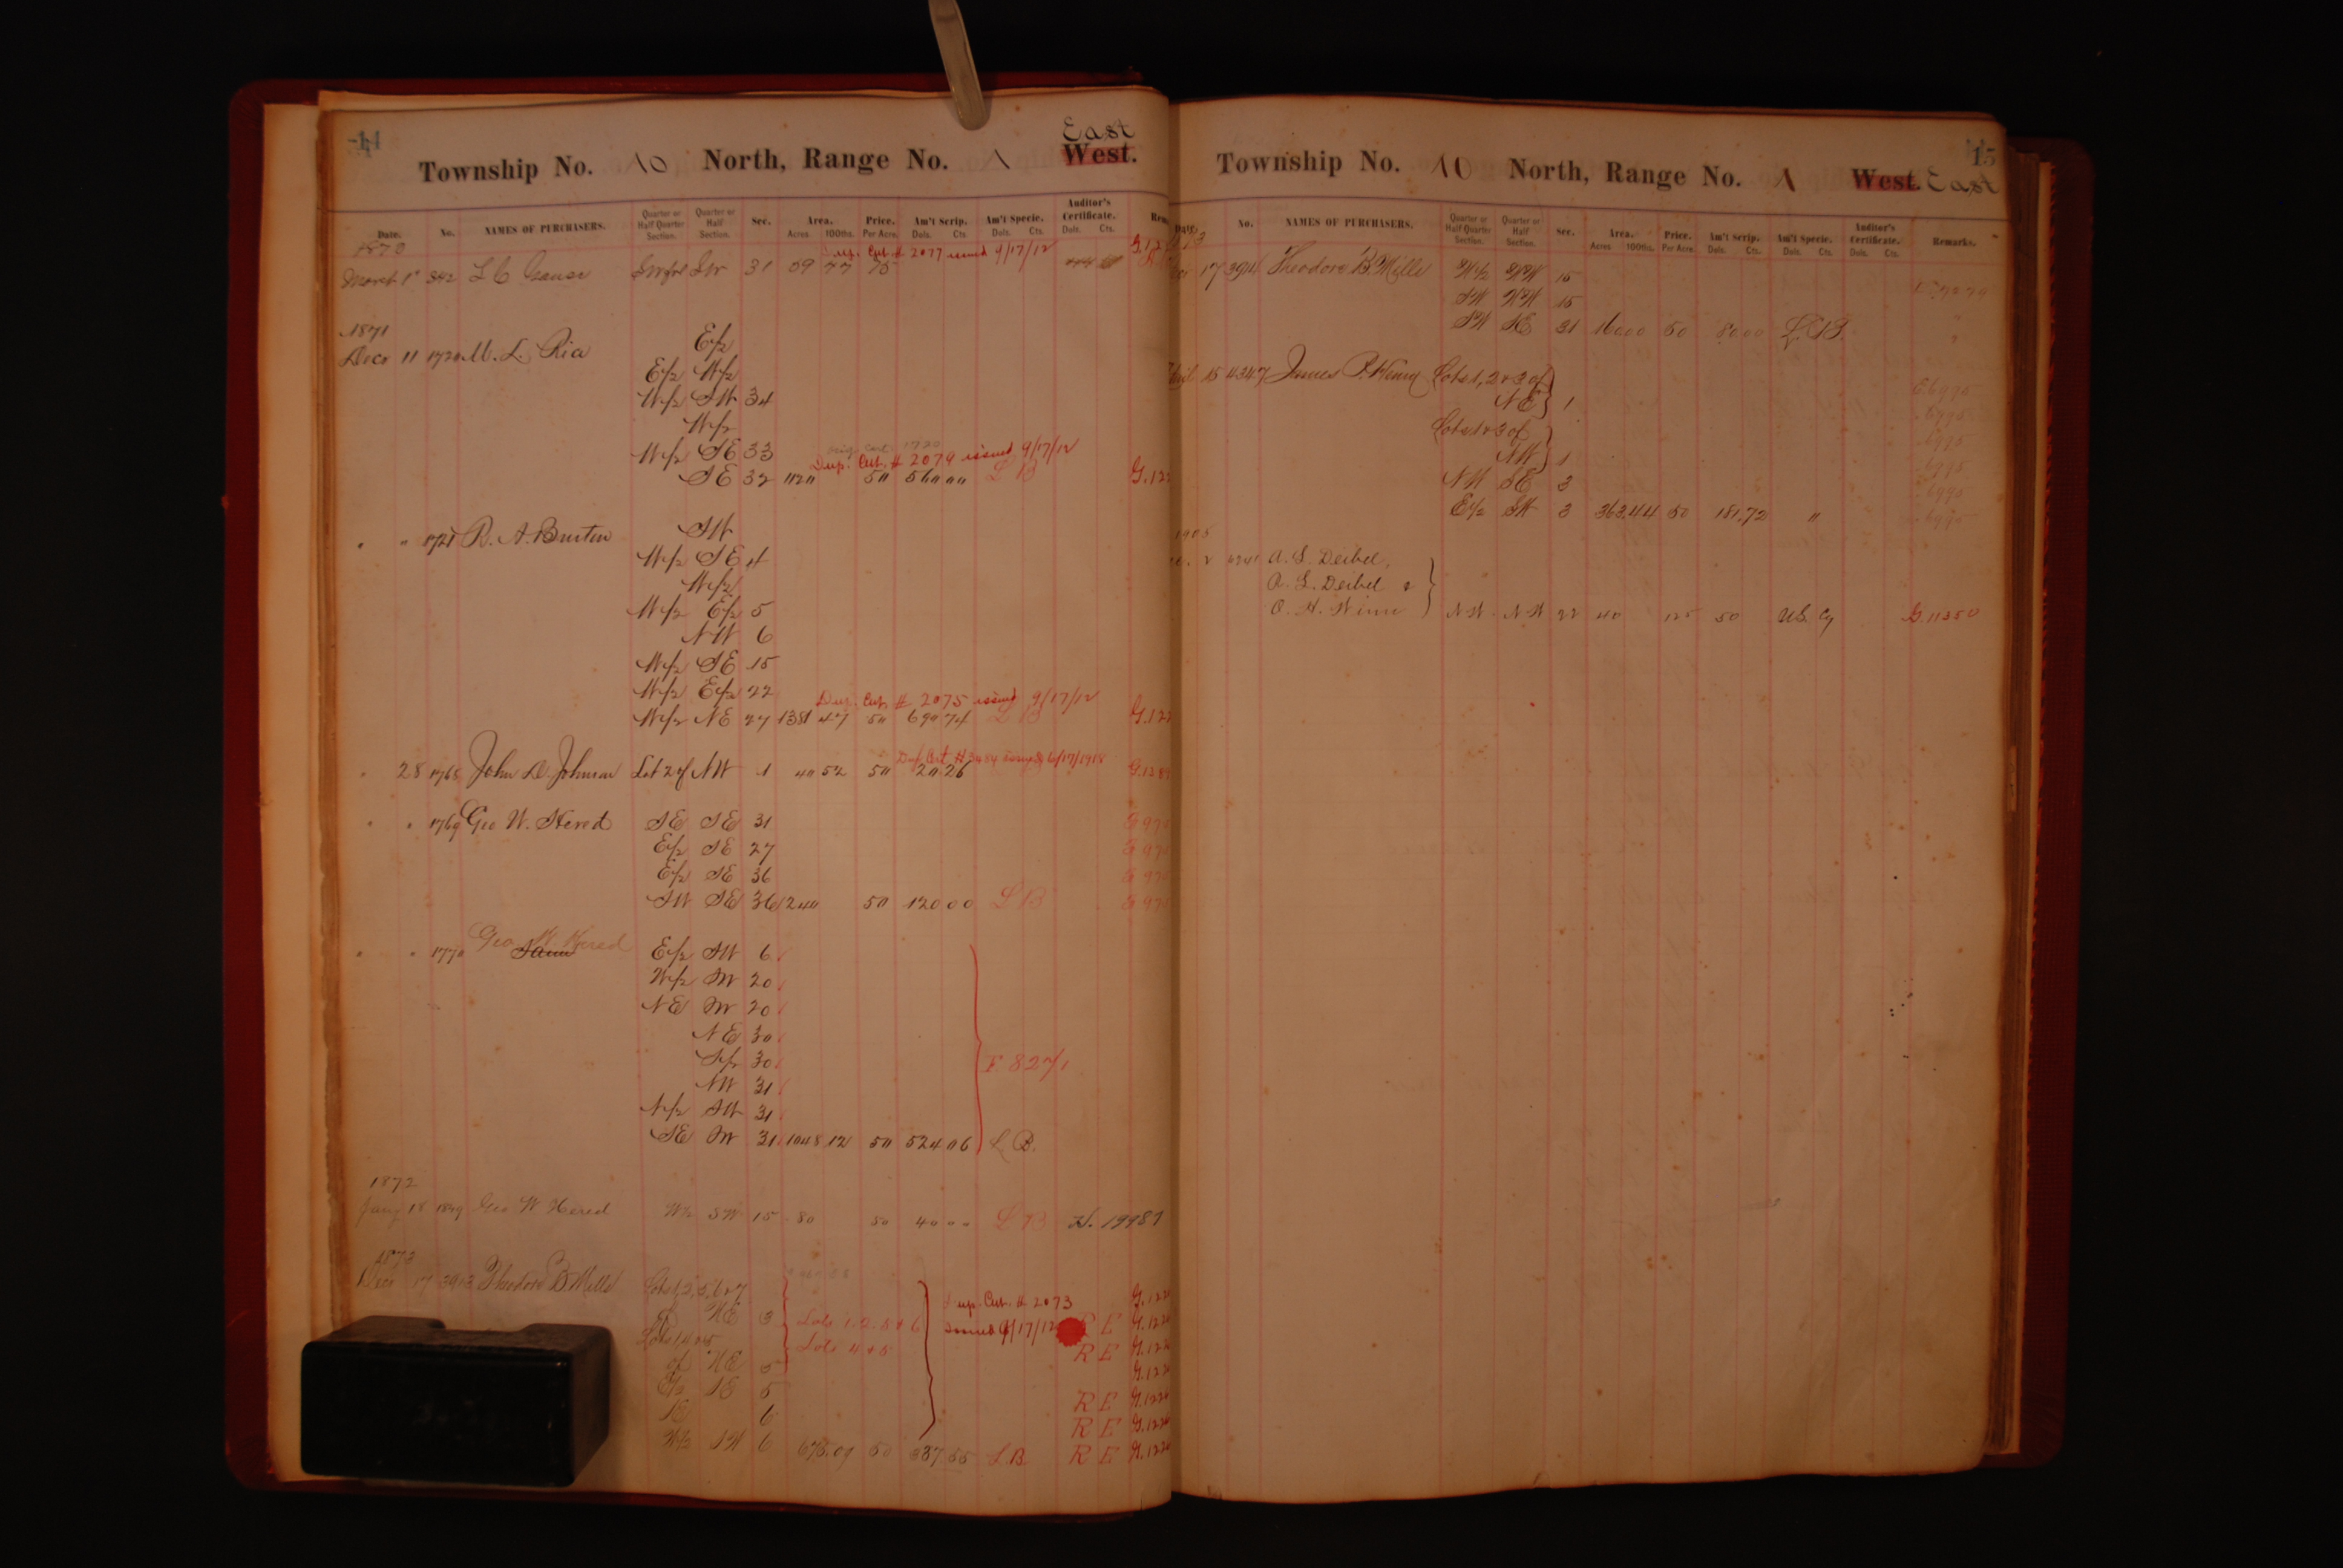 14
East
Township No. 10 North, Range No. 1 West.
Date. No. NAMES OF PURCHASERS. Quarter or Half Quarter Section. Quarter or Half Section. Sec. Area. Acres 100ths. Price. Per Acre. Am't Scrip. Dols. Cts. Am't Specie. Dols. Cts. Auditor's Certificate. Dols. Cts.
1870
Dup. Cert # 2077 issued 9/17/12
March 1st 842 L C Gause SW frl SW 31 39 77 75
1871
Dec 11 1720 M. L. Rice E/2
E/2 W/2
W/2 SW 34
W/2
W/2 SE 33
Orig. Cert. 1720
Dup. Cert. # 2079 issued 9/17/12
SE 32 1120 50 560 00 L B
" " 1721 R. A. Burton SW
W/2 SE 4
W/2
W/2 E/2 5
NW 6
W/2 SE 15
W/2 E/2 22
Dup. Cert. # 2075 issued 9/17/12
W/2 NE 27 1381 47 50 690 74 L B
Dup Cert # 3484 issued 6/17/1918
" 28 1768 John D. Johnson Lot 2 of NW 1 40 52 50 20.26
" " 1769 Geo W. Hered SE SE 31
E/2 SE 27
E/2 SE 36
SW SE 36 240 50 120 00 L B
Geo W. Hered
" " 1770 Same E/2 SW 6
W/2 SW 20
NE SW 20
NE 30
S/2 30
F 8271
NW 31
N/2 SW 31
SE SW 31 1048 12 50 524 06 L B.
1872
Jany 18 1849 Geo W Hered W/2 SW 15 80 50 40 00 L B H. 19987
1873
Dec 17 3943 Theodore B. Mills Lots 1, 2, 5, 6 & 7
Dup. Cert. # 2073
of NE 3 Lots 1. 2. 5 & 6 issued 9/17/12 R E
Lots 1, 4 & 5 Lots 4 & 5 R E
of NE 5
E/2 SE 5 R E
6 R E
W/2 SW 6 675.09 50 337.55 L B. R E
15
Township No. 10 North, Range No. 1 West. East
No. NAMES OF PURCHASERS. Quarter or Half Quarter Section. Quarter or Half Section. Sec. Area. Acres 100ths. Price. Per Acre. Am't Scrip. Dols. Cts. Am't Specie. Dols. Cts. Auditor's Certificate. Dols. Cts. Remarks.
17 3944 Theodore B. Mills N/2 NW 15
SW NW 15
SW SE 31 160.00 50 80.00 L. B.
April 15 4347 James P. Henry Lots 1, 2 & 3 of E.6995
NE 1 " 6995
Lots 1 & 3 of " 6995
NW 1 " 6995
NW SE 3 " 6995
E/2 SW 3 363.44 50 181.72 " " 6995
1905
A. L. Deibel,
A. L. Deibel &
O. H. Winn NW NW 22 40 125 50 U.S. Cy G. 11350